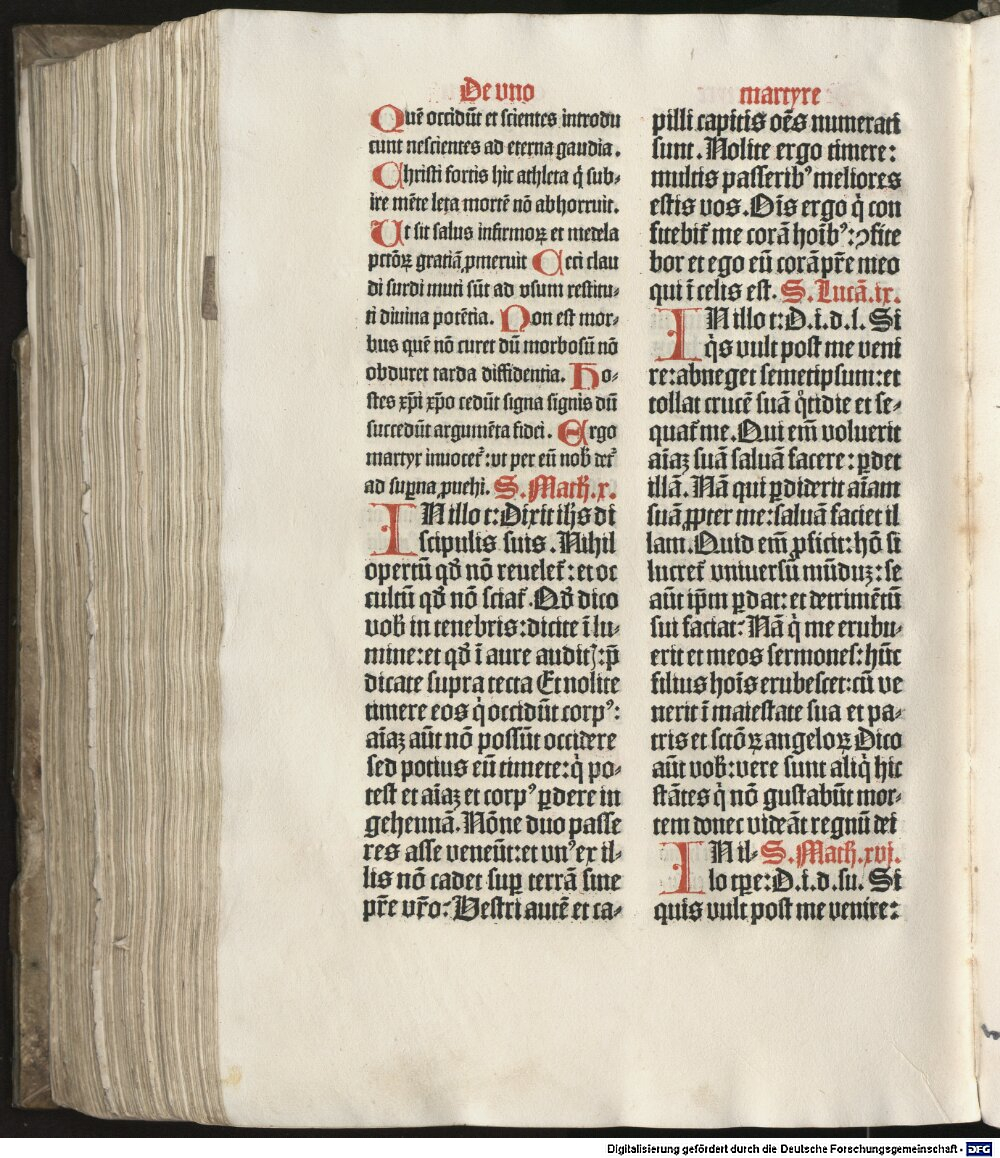 De vno
Quē occidūt et scientes introdu
cunt nescientes ad eterna gaudia.
Christi fortis hic athleta q̄ sub-
ire mēte leta mortē nō abhorruit.
Ut sit salus infirmoꝝ et medela
pctōꝝ gratiā ꝓmeruit Ceci clau
di surdi muti sūt ad vsum restitu-
ti diuina potētia. Non est mor-
bus quē nō curet dū morbosū nō
obduret tarda diffidentia. Ho-
stes xp̄i xp̄o cedūt signa signis dū
succedūt argumēta fidei. Ergo
martyr inuocet᷑: vt per eū nob̄ det᷑
ad suꝑna ꝓuehi. S. Math. x.
IN illo t: Dixit ihs di
scipulis suis. Nihil
opertū qđ nō reuelet᷑: et oc
cultū qđ nō sciat᷑. Qđ dico
vob̄ in tenebris: dicite ī lu-
mine: et qđ ī aure auditꝭ: p̄
dicate supra tecta Et nolite
timere eos q̇ occidūt corpꝰ:
aīaꝫ aūt nō possūt occidere
sed potius eū timete: q̇ po-
test et aīaꝫ et corpꝰ ꝑdere in
gehennā. Nōne duo passe
res asse veneūt: et vnꝰ ex il-
lis nō cadet suꝑ terrā sine
pr̄e vr̄o: Vestri autē et ca-
martyre
pilli capitis oēs numerati
sunt. Nolite ergo timere:
multis passeribꝰ meliores
estis vos. Oīs ergo q̇ con
fitebit᷑ me corā hoībꝰ: ꝯfite
bor et ego eū corā pr̄e meo
qui ī celis est. S. Lucā. ix.
IN illo t: D. i. d. l. Si
q̇s vult post me veni
re: abneget semetipsum: et
tollat crucē suā q̇tidie et se-
quat᷑ me. Qui em̄ voluerit
aīaꝫ suā saluā facere: ꝑdet
illā. Nā qui ꝑdiderit aīam
suā ꝓpter me: saluā faciet il
lam. Quid em̄ ꝓficit: hō si
lucret᷑ vniuersū mūduꝫ: se
aūt ip̄m ꝑdat: et detrimētū
sui faciat: Nā q̇ me erubu-
erit et meos sermones: hūc
filius hoīs erubescet: cū ve
nerit ī maiestate sua et pa-
tris et sctōꝝ angeloꝝ Dico
aūt vob̄: vere sunt aliq̇ hic
stātes q̇ nō gustabūt mor-
tem donec videāt regnū dei
IN il- S. Math. xvi.
lo tꝑe: D. i. d. su. Si
quis vult post me venire:
Digitalisierung gefördert durch die Deutsche Forschungsgemeinschaft - DFG